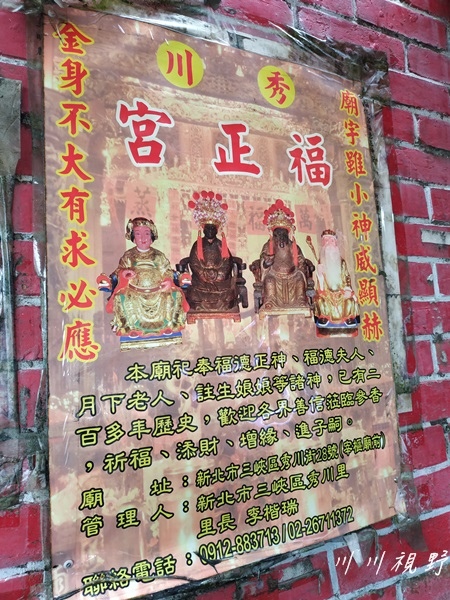 秀川
福正宮
廟宇雖小神威顯赫
金身不大有求必應
本廟祀奉福德正神、福德夫人、
月下老人、註生娘娘等諸神，已有二
百多年歷史，歡迎各界善信蒞臨參香
，祈福、添財、增緣、進子嗣。
廟　　址：新北市三峽區秀川街28號(宰樞廟前)
管 理 人：新北市三峽區秀川里
里長 李楷瑞
聯絡電話：0912-883713 / 02-26711372
川川視野